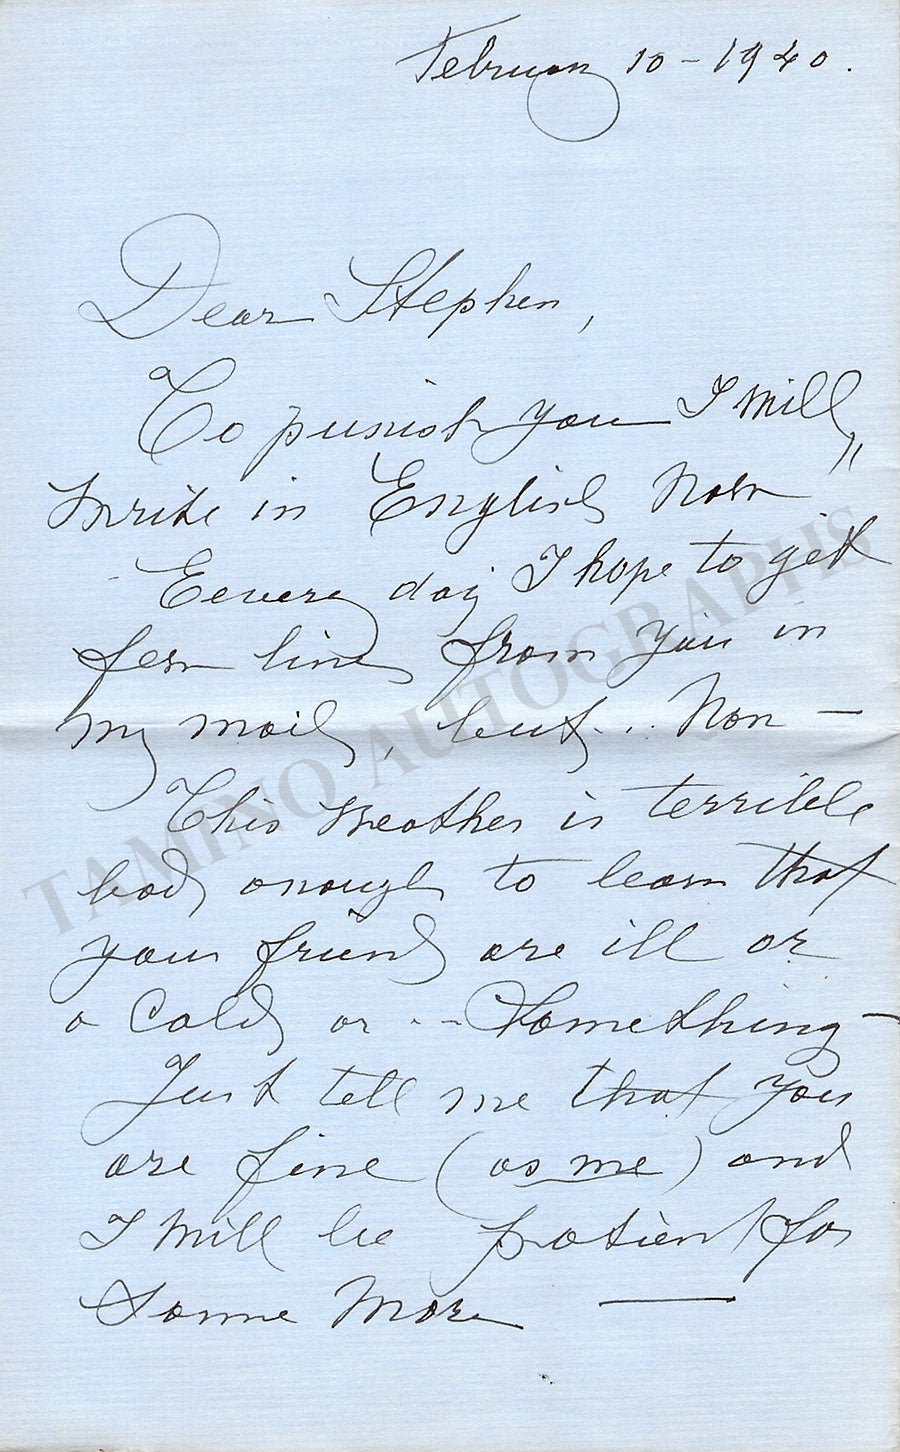 February 10 - 1940.
Dear Stephen,
To punish you I will
write in English now "
Eevery day I hope to gett
few lines from you in
my mail, but... Non -
This weather is terrible
bad, enough to learn that
your friend are ill or
a Cold, or -- Something -
Just tell me that you
are fine (as me) and
I will be patient for
Some more —
TAMINO AUTOGRAPHS